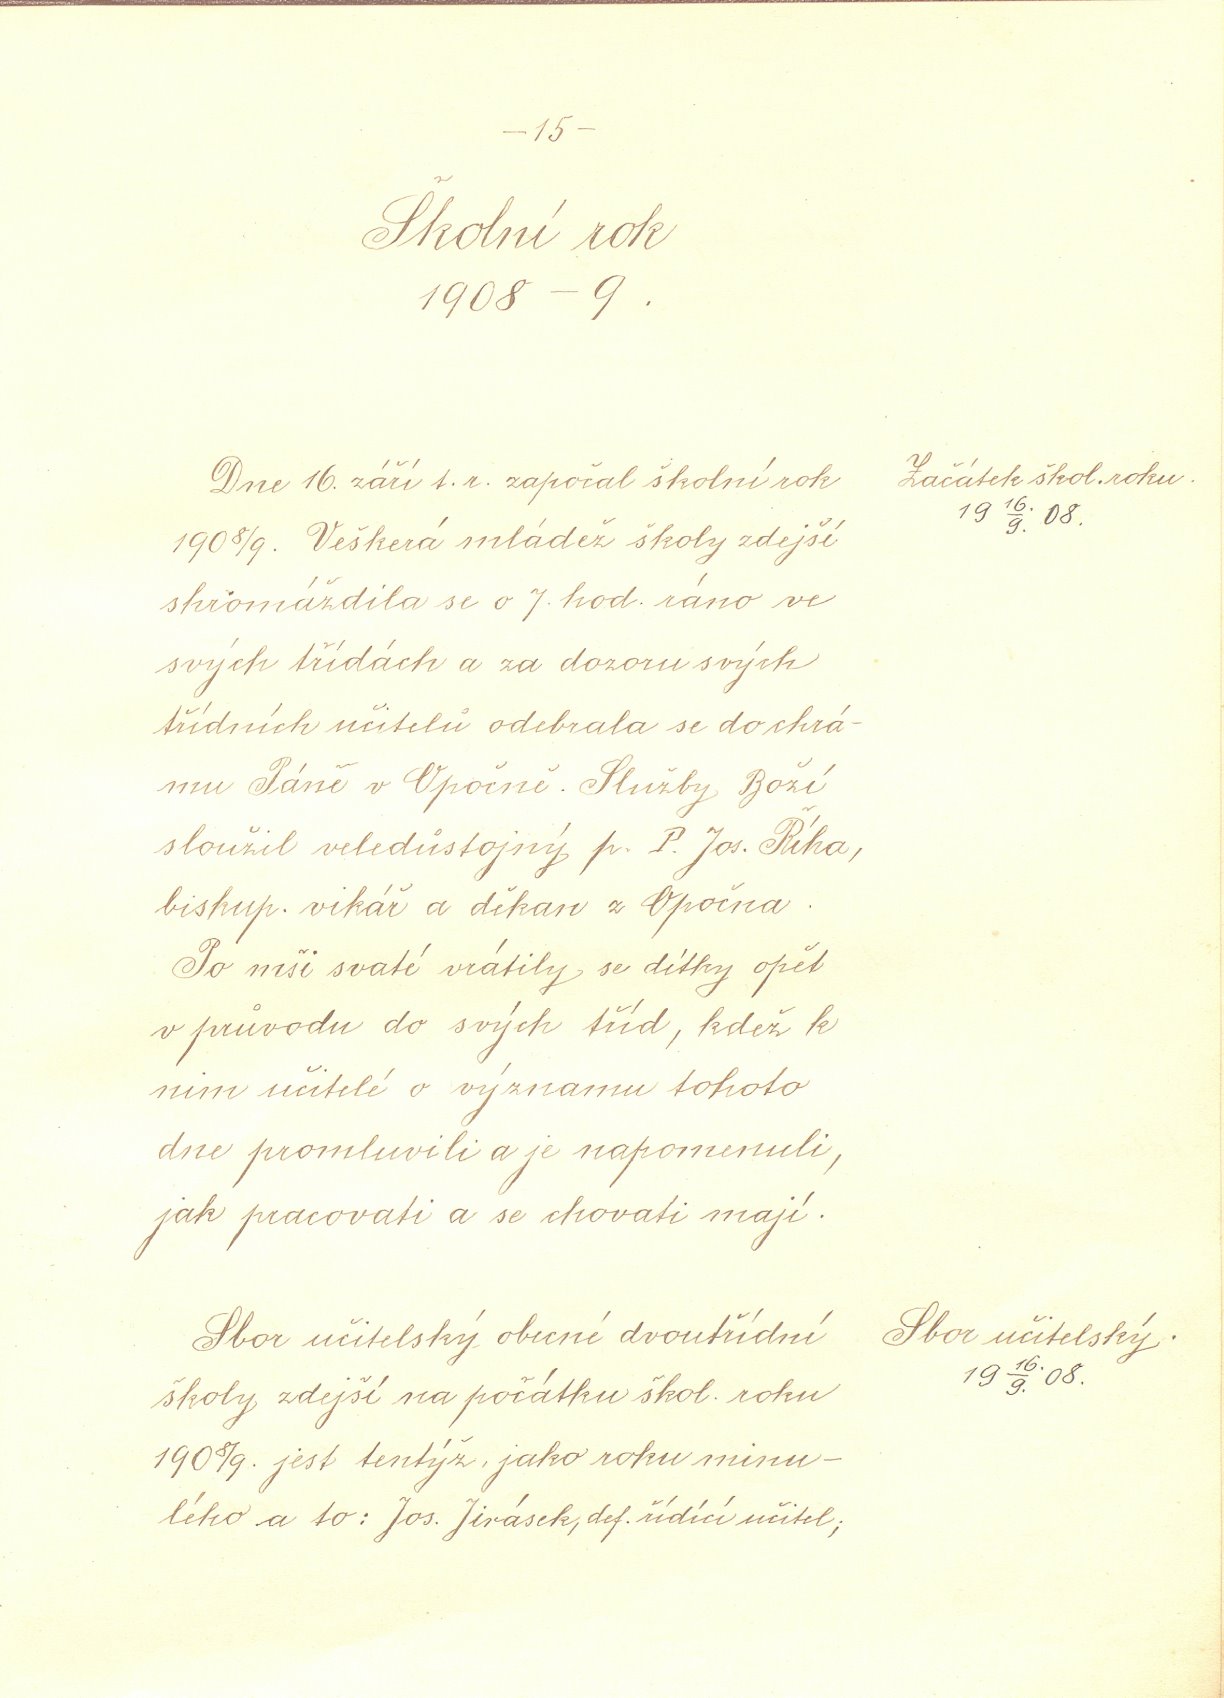 – 15 –
Školní rok
1908 – 9.
Dne 16. září t. r. započal školní rok
1908/9. Veškerá mládež školy zdejší
shromáždila se o 7. hod. ráno ve
svých třídách a za dozoru svých
třídních učitelů odebrala se do chrá-
mu Páně v Opočně. Služby Boží
sloužil veledůstojný p. P. Jos. Říha,
biskup. vikář a děkan z Opočna.
Po mši svaté vrátily se dítky opět
v průvodu do svých tříd, kdež k
nim učitelé o významu tohoto
dne promluvili a je napomenuli,
jak pracovati a se chovati mají.
Začátek škol. roku.
19 16./9. 08.
Sbor učitelský obecné dvoutřídní
školy zdejší na počátku škol. roku
1908/9. jest tentýž, jako roku minu-
lého a to: Jos. Jirásek, def. řídící učitel;
Sbor učitelský.
19 16./9. 08.